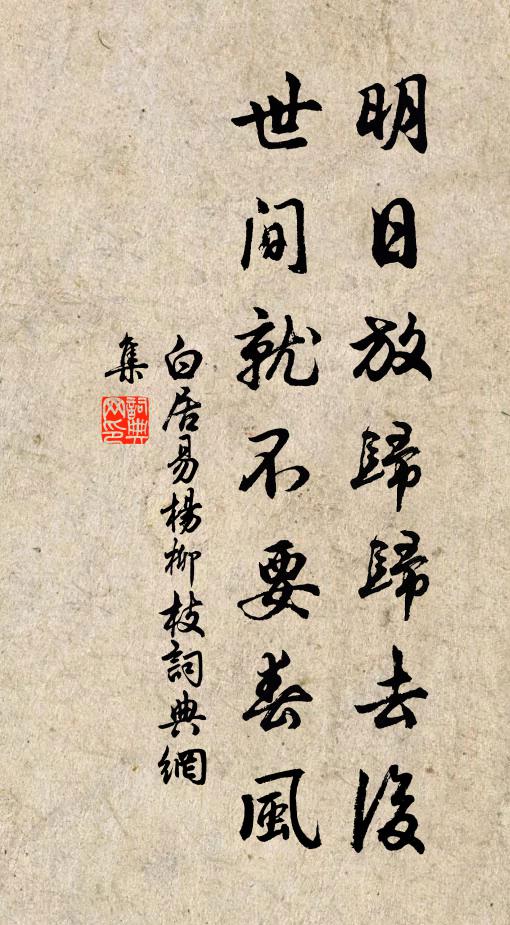 明日放歸歸去後
世間就不要春風
白居易楊柳枝詞典網
集
詞典網印